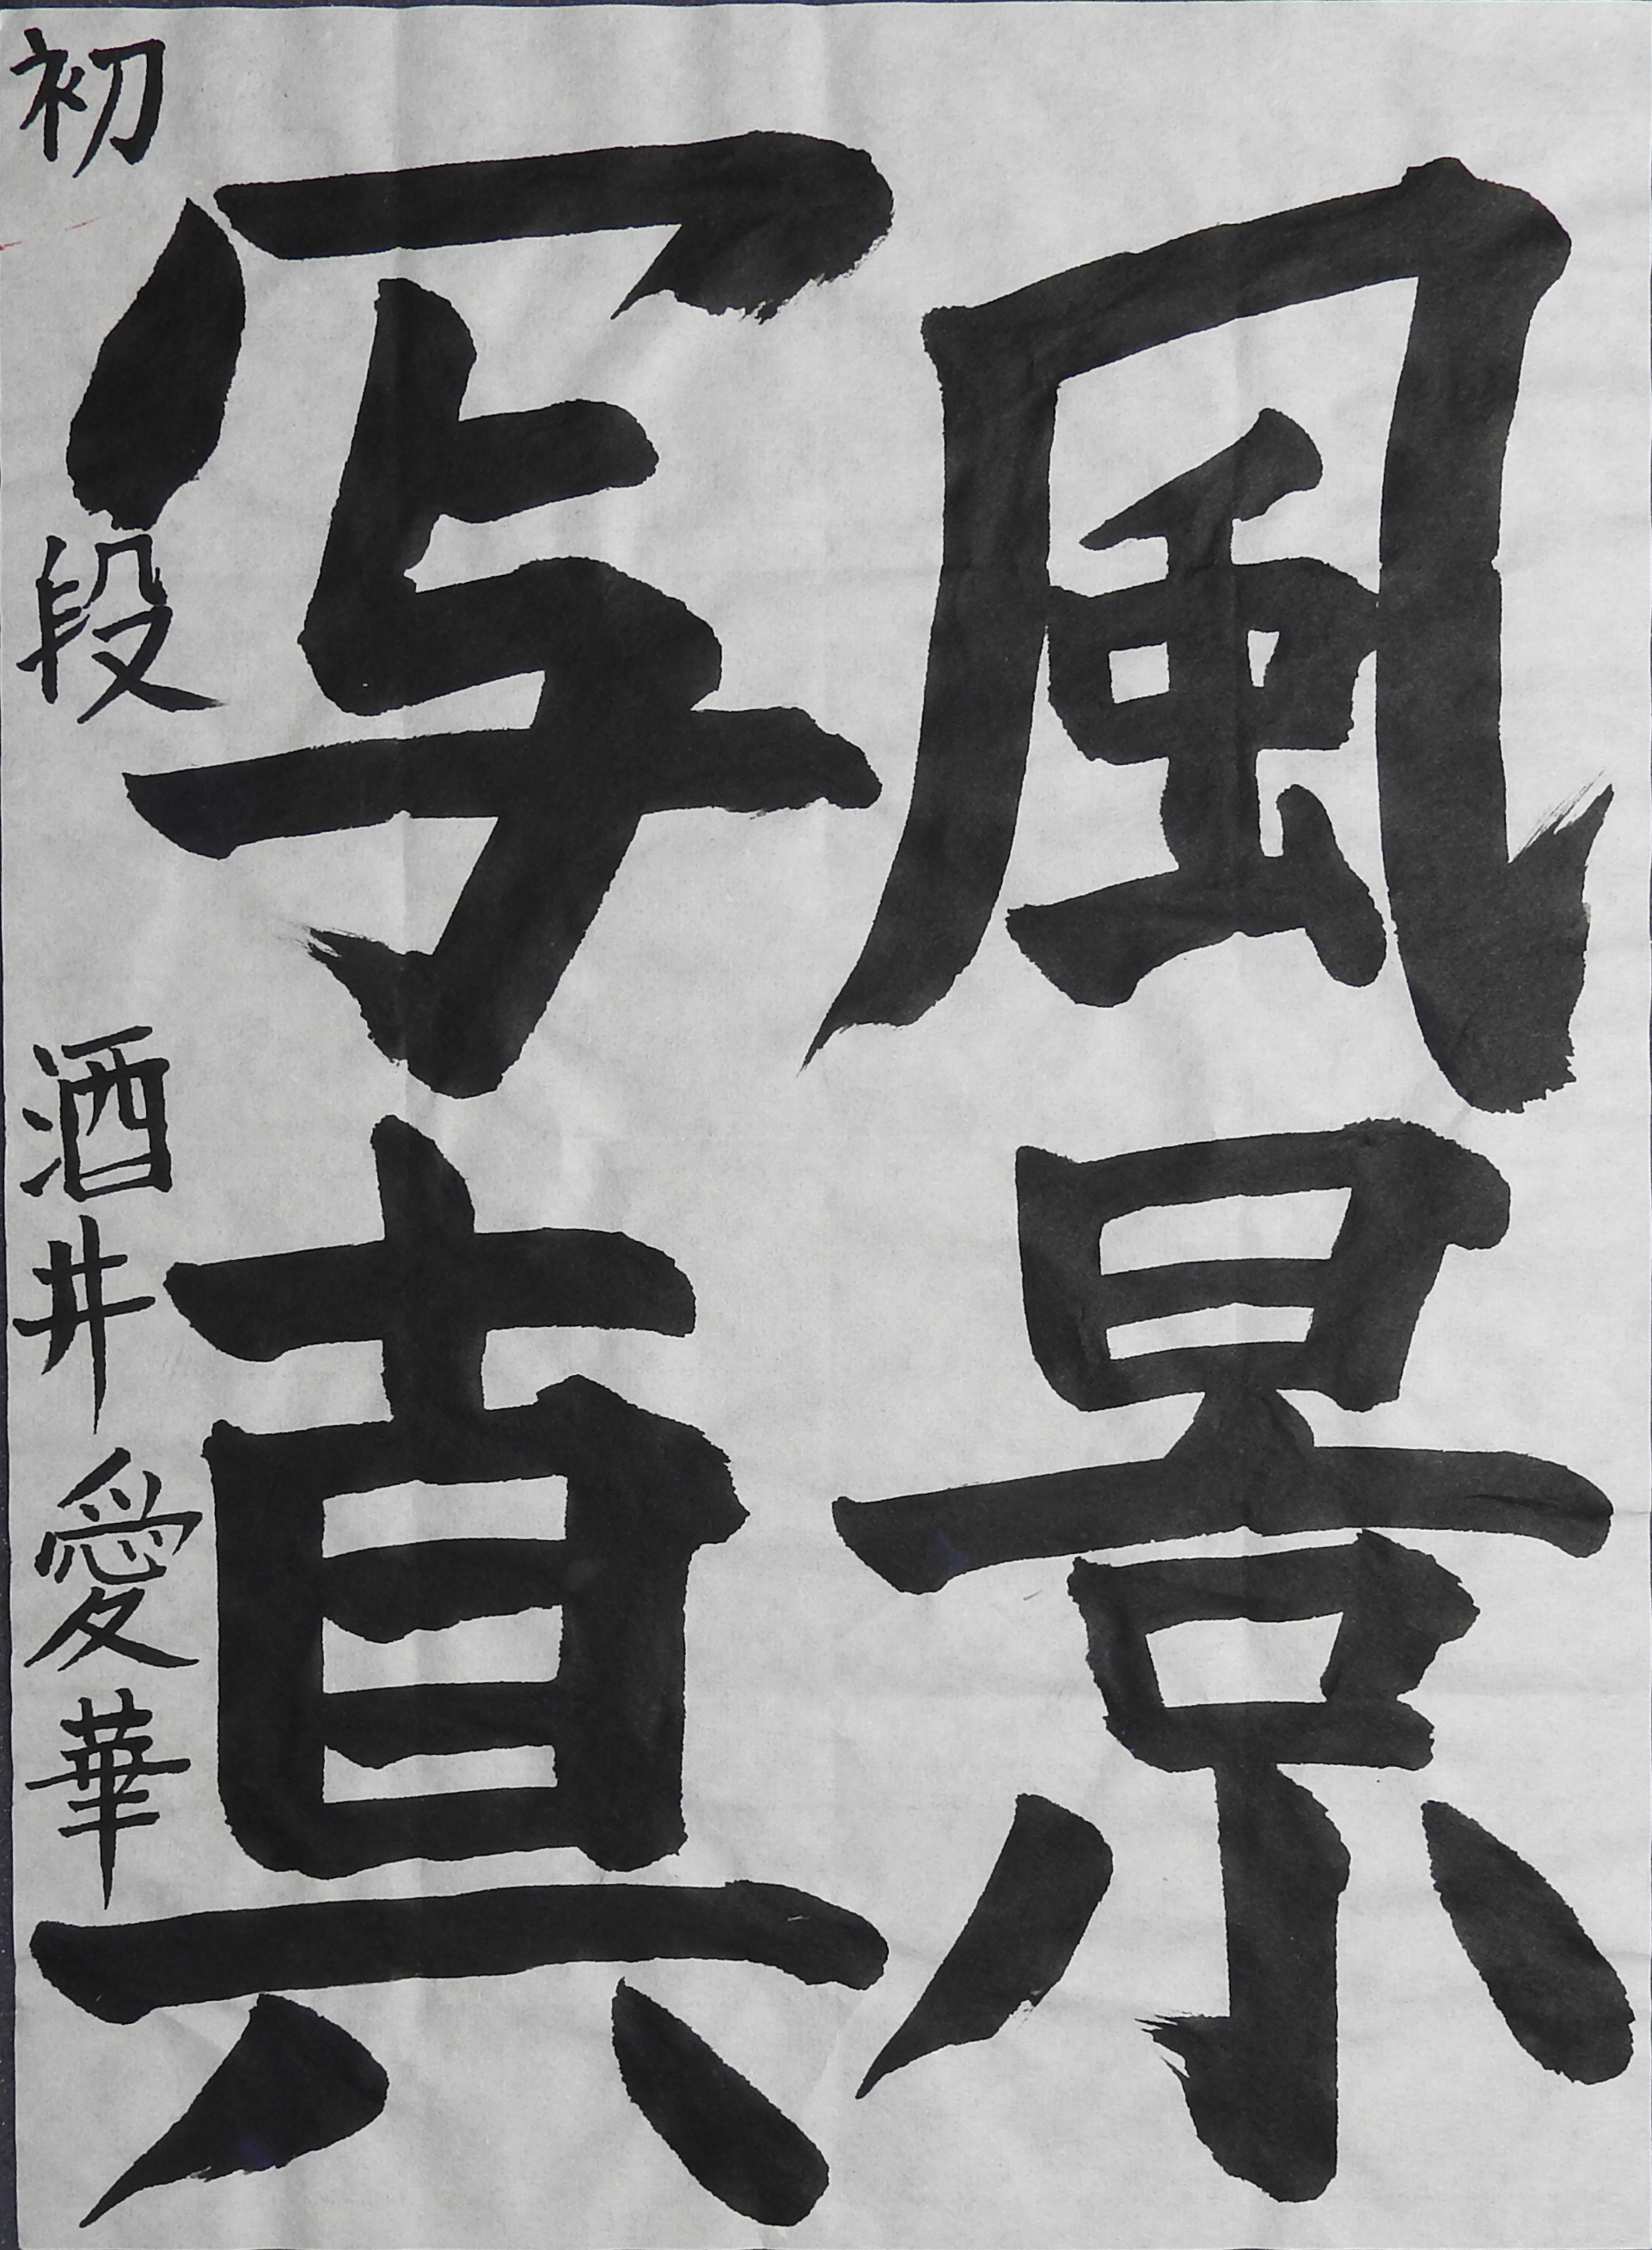 風景
写真
初段 酒井愛華